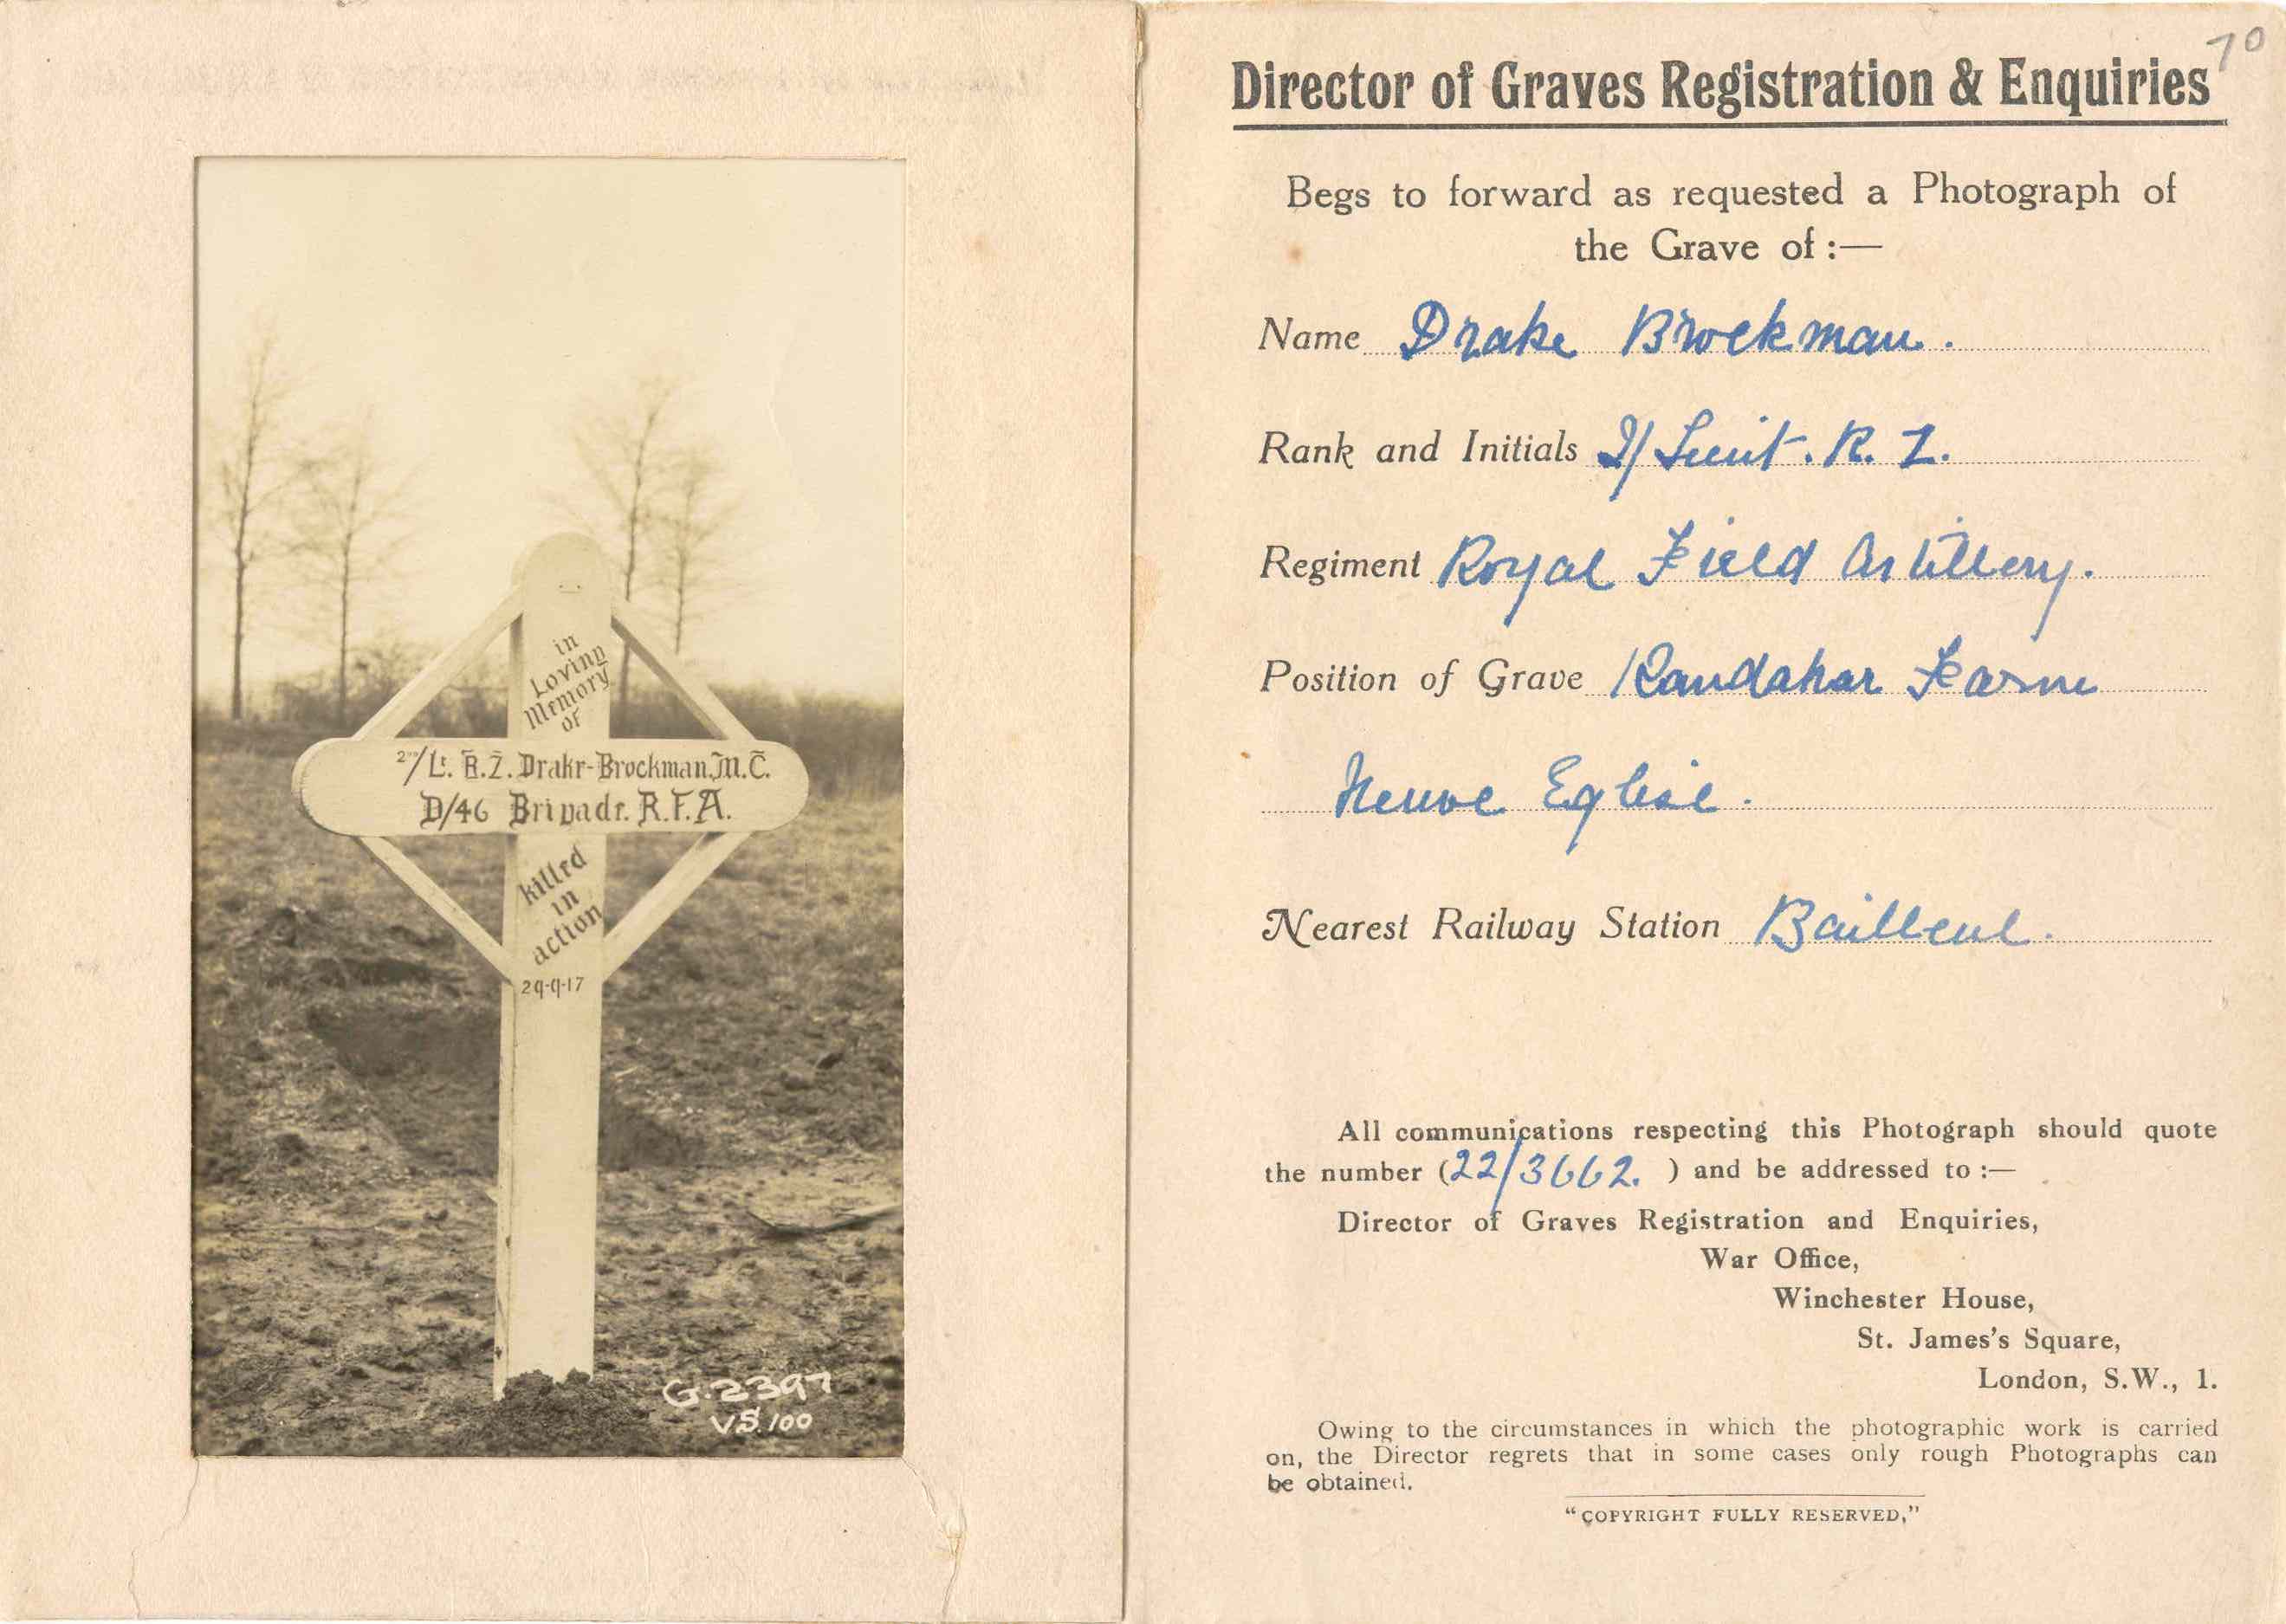 in
Loving
Memory
of
2nd/Lt. R.Z. Drake-Brockman, M.C.
D/46 Brigade. R.F.A.
killed
in
action
29-9-17
G.2397
V.S.100
70
Director of Graves Registration & Enquiries
Begs to forward as requested a Photograph of
the Grave of :—
Name Drake Brockman.
Rank and Initials 2/Lieut. R. Z.
Regiment Royal Field Artillery.
Position of Grave Kandahar Farm
Neuve Eglise.
Nearest Railway Station Bailleul.
All communications respecting this Photograph should quote
the number (22/3662. ) and be addressed to :—
Director of Graves Registration and Enquiries,
War Office,
Winchester House,
St. James's Square,
London, S.W., 1.
Owing to the circumstances in which the photographic work is carried
on, the Director regrets that in some cases only rough Photographs can
be obtained.
"COPYRIGHT FULLY RESERVED,"